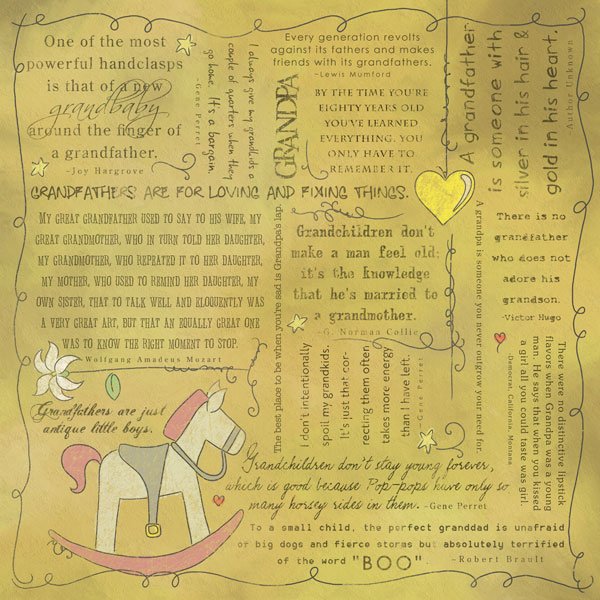 One of the most
powerful handclasps
is that of a new
grandbaby
around the finger of
a grandfather.
-Joy Hargrove
I always give my grandkids a
couple of quarters when they
go home. It's a bargain.
-Gene Perret
GRANDPA
Every generation revolts
against its fathers and makes
friends with its grandfathers.
~Lewis Mumford
BY THE TIME YOU'RE
EIGHTY YEARS OLD
YOU'VE LEARNED
EVERYTHING. YOU
ONLY HAVE TO
REMEMBER IT.
A grandfather
is someone with
silver in his hair &
gold in his heart.
-Author Unknown
GRANDFATHERS ARE FOR LOVING AND FIXING THINGS.
MY GREAT GRANDFATHER USED TO SAY TO HIS WIFE, MY
GREAT GRANDMOTHER, WHO IN TURN TOLD HER DAUGHTER,
MY GRANDMOTHER, WHO REPEATED IT TO HER DAUGHTER,
MY MOTHER, WHO USED TO REMIND HER DAUGHTER, MY
OWN SISTER, THAT TO TALK WELL AND ELOQUENTLY WAS
A VERY GREAT ART, BUT THAT AN EQUALLY GREAT ONE
WAS TO KNOW THE RIGHT MOMENT TO STOP.
-Wolfgang Amadeus Mozart
The best place to be when you're sad is Grandpa's lap.
Grandchildren don't
make a man feel old;
it's the knowledge
that he's married to
a grandmother.
-G. Norman Collie
A grandpa is someone you never outgrow your need for.
There is no
grandfather
who does not
adore his
grandson.
-Victor Hugo
I don't intentionally
spoil my grandkids.
It's just that cor-
recting them often
takes more energy
than I have left.
-Gene Perret
There were no distinctive lipstick
flavors when Grandpa was a young
man. He says that when you kissed
a girl all you could taste was girl.
Democrat, California, Montana
Grandfathers are just
antique little boys.
Grandchildren don't stay young forever,
which is good because Pop-pops have only so
many horsey rides in them. -Gene Perret
To a small child, the perfect granddad is unafraid
of big dogs and fierce storms but absolutely terrified
of the word "BOO". -Robert Brault